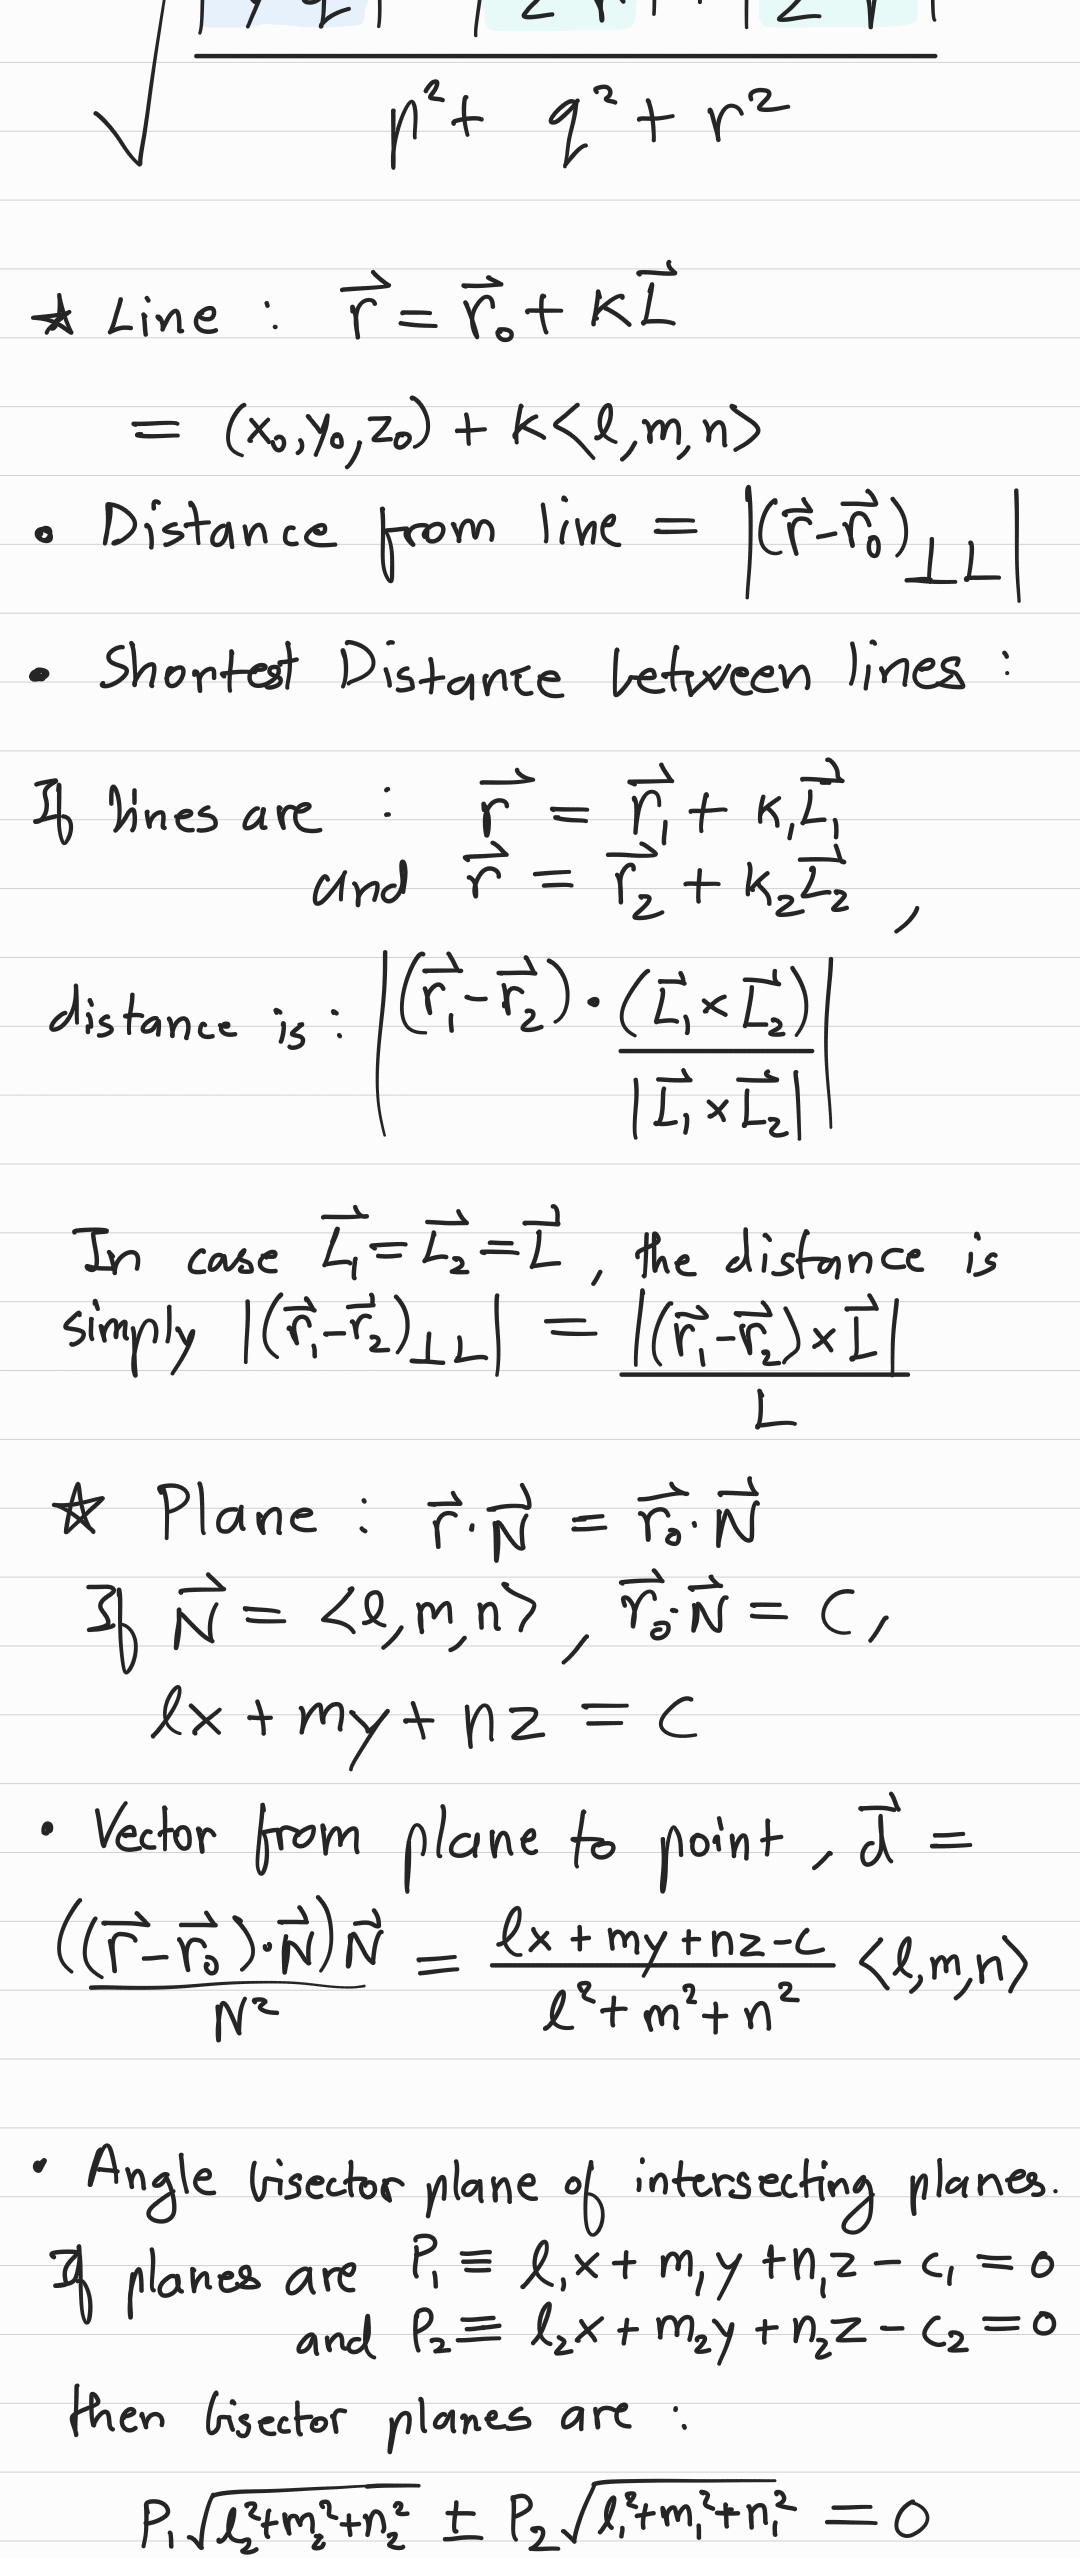 p² + q² + r²
☆ Line : r⃗ = r⃗₀ + K L⃗
= (x₀, y₀, z₀) + K<l, m, n>
• Distance from line = |(r⃗ - r⃗₀)⊥L|
• Shortest Distance between lines :
If lines are : r⃗ = r⃗₁ + K₁L⃗₁
and r⃗ = r⃗₂ + K₂L⃗₂ ,
distance is : |(r⃗₁ - r⃗₂) · (L⃗₁ × L⃗₂) / |L⃗₁ × L⃗₂| |
In case L⃗₁ = L⃗₂ = L⃗ , the distance is
simply |(r⃗₁ - r⃗₂)⊥L| = |(r⃗₁ - r⃗₂) × L⃗| / L
☆ Plane : r⃗ · N⃗ = r⃗₀ · N⃗
If N⃗ = <l, m, n> , r⃗₀ · N⃗ = C,
lx + my + nz = C
• Vector from plane to point , d⃗ =
((r⃗ - r⃗₀) · N⃗) N⃗ / N² = (lx + my + nz - c) / (l² + m² + n²) <l, m, n>
• Angle bisector plane of intersecting planes.
If planes are P₁ ≡ l₁x + m₁y + n₁z - c₁ = 0
and P₂ ≡ l₂x + m₂y + n₂z - c₂ = 0
then bisector planes are :
P₁√(l₂² + m₂² + n₂²) ± P₂√(l₁² + m₁² + n₁²) = 0